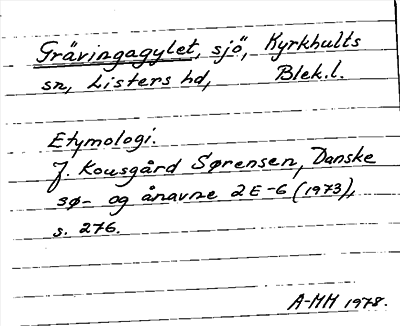 Grävingagylet, sjö, Kyrkhults
sn, Listers hd, Blek.l.
Etymologi.
J. Kousgård Sørensen, Danske
sø- og ånavne 2E-G (1973),
s. 276.
A-MH 1978.